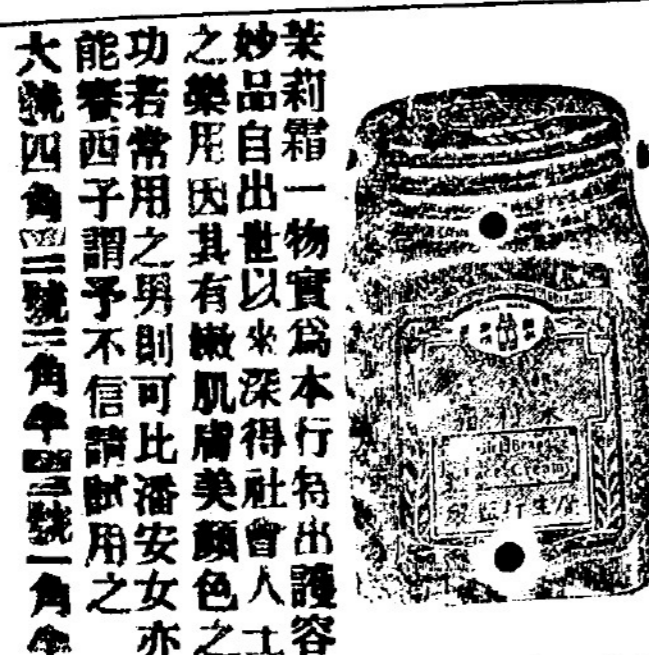 茉莉霜一物實爲本行特出護容
妙品自出世以來深得社會人士
之樂用因其有嫩肌膚美顏色之
功若常用之男則可比潘安女亦
能賽西子謂予不信請試用之
大號四角 二號二角半 三號一角半
Cream